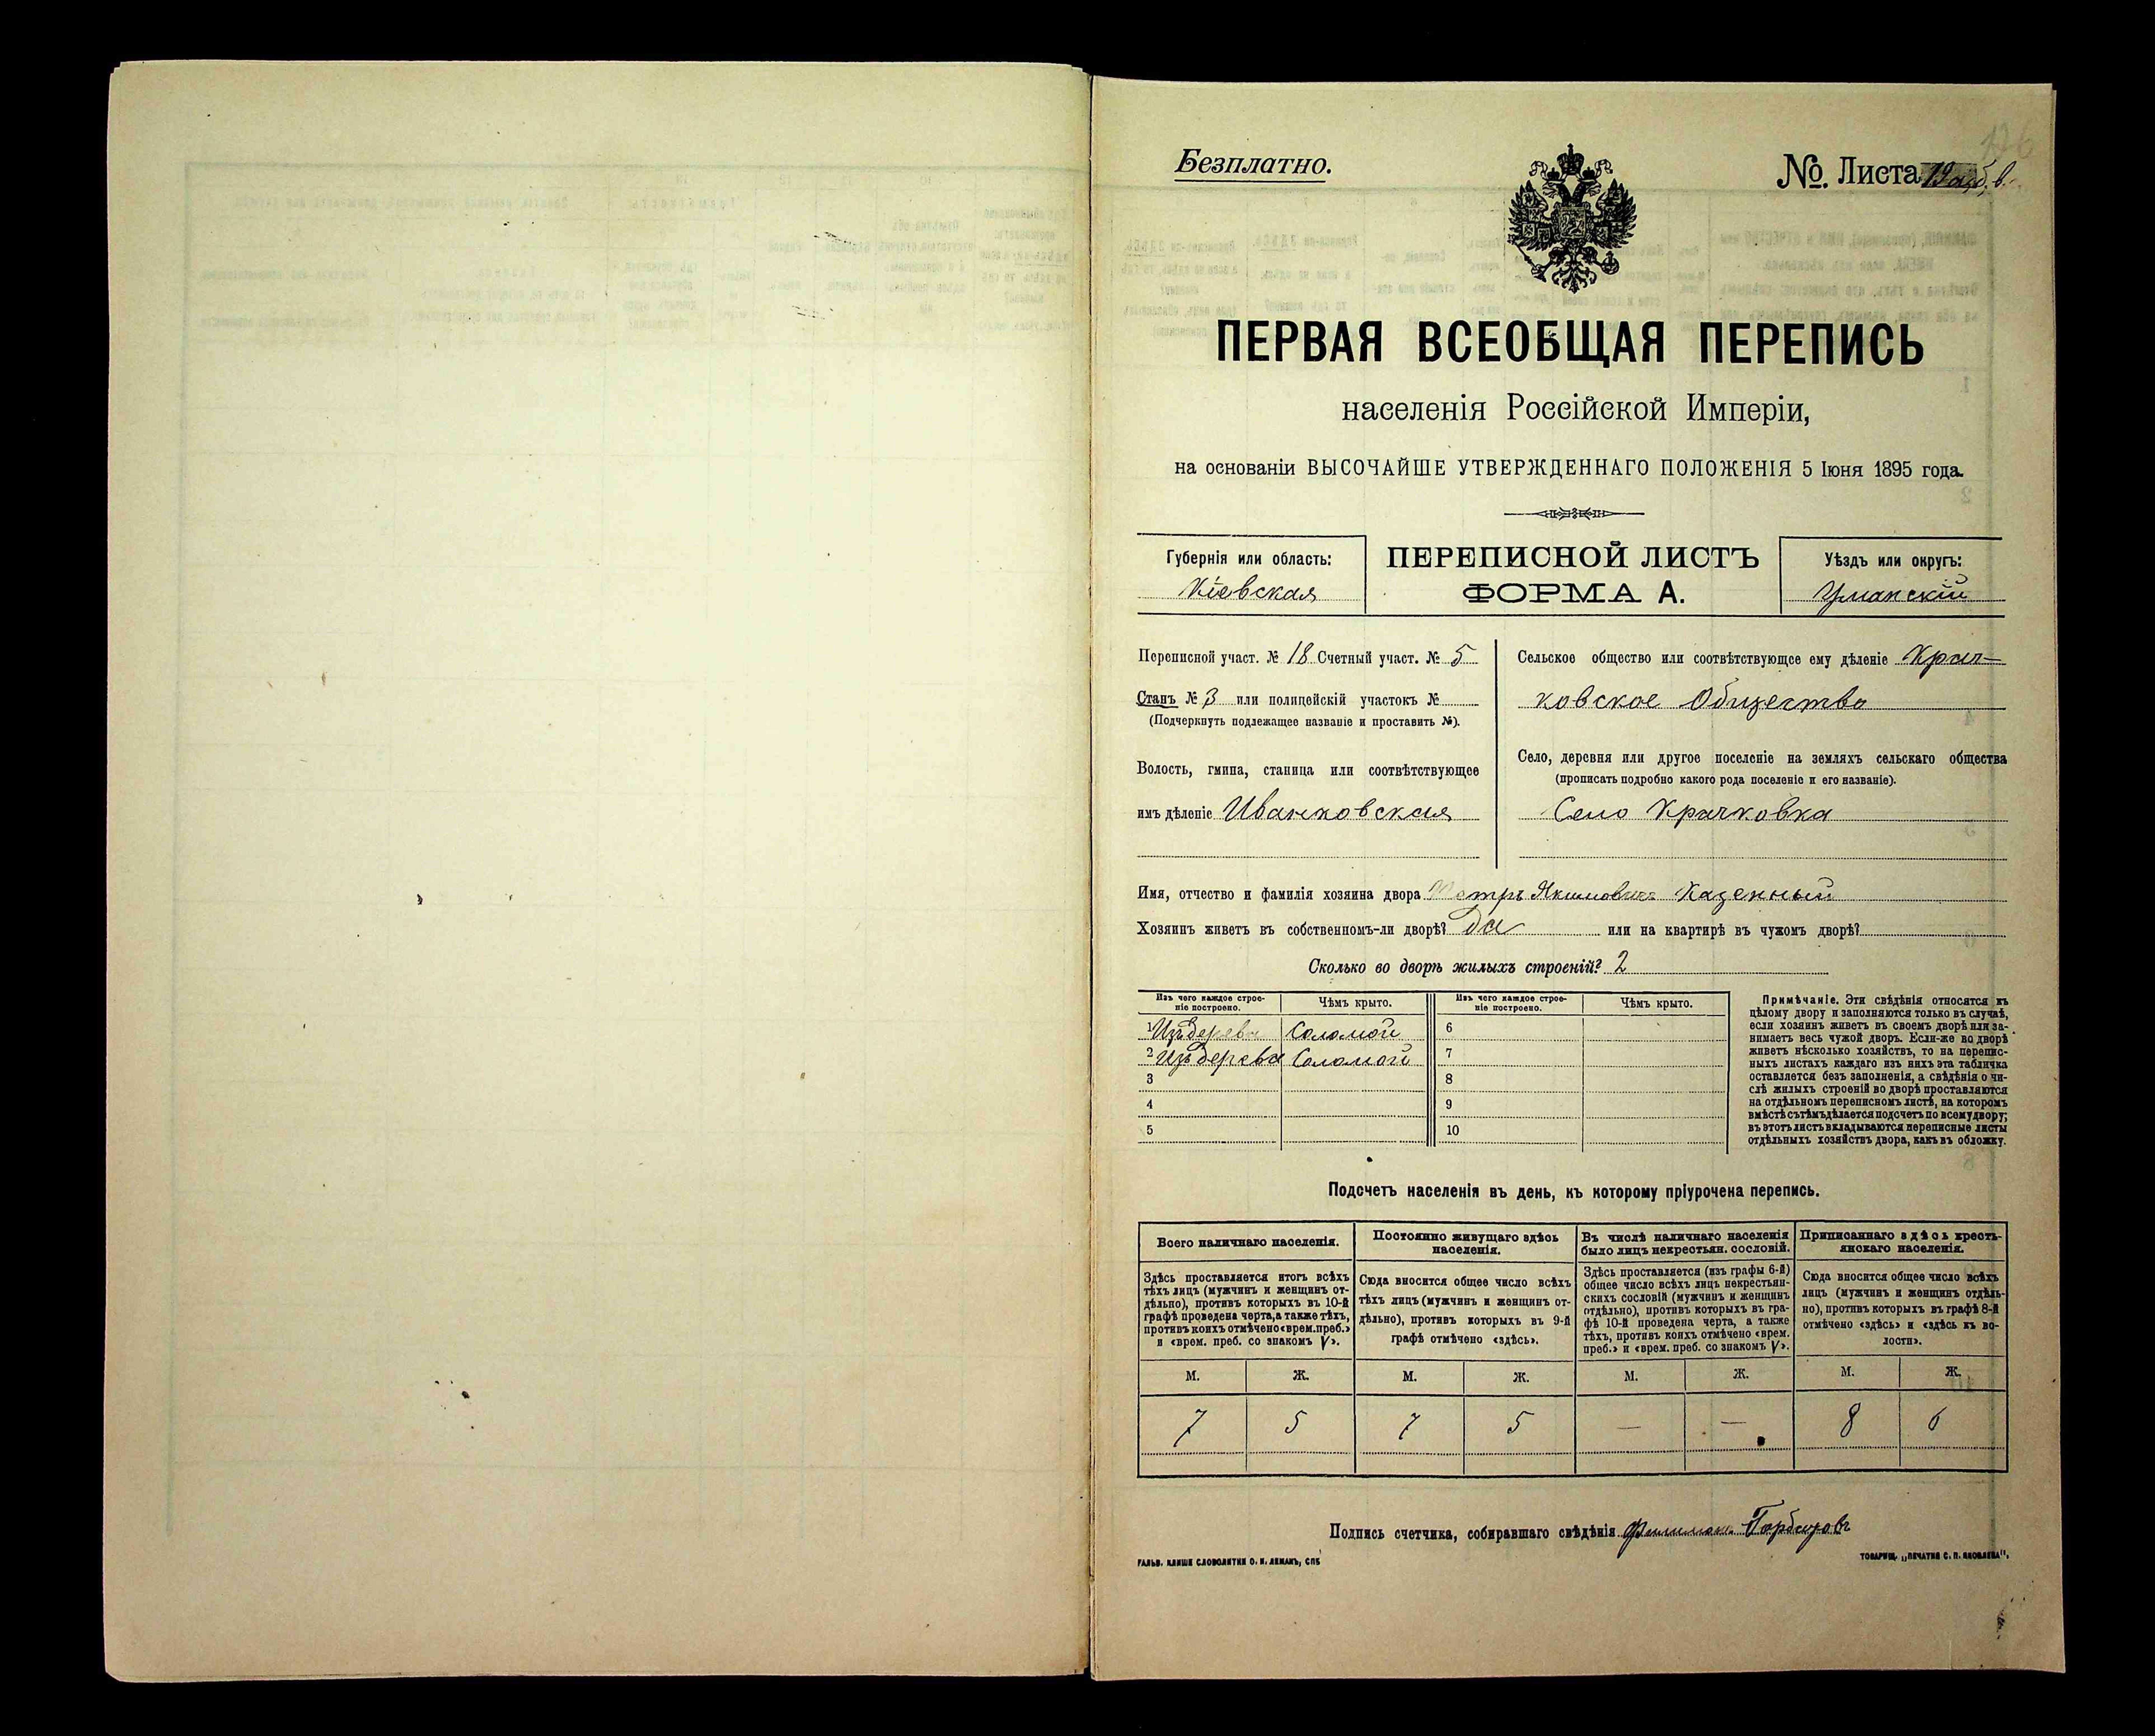 Безплатно.
№. Листа 19 а, б, в.
ПЕРВАЯ ВСЕОБЩАЯ ПЕРЕПИСЬ
населенія Россійской Имперіи,
на основаніи ВЫСОЧАЙШЕ УТВЕРЖДЕННАГО ПОЛОЖЕНІЯ 5 Іюня 1895 года.
Губернія или область:
Кіевская
ПЕРЕПИСНОЙ ЛИСТЪ
ФОРМА А.
Уѣздъ или округъ:
Уманскій
Переписной участ. № 18 Счетный участ. № 5
Станъ № 3 или полицейскій участокъ №
(Подчеркнуть подлежащее названіе и проставить №).
Волость, гмина, станица или соотвѣтствующее
имъ дѣленіе Иванковская
Сельское общество или соотвѣтствующее ему дѣленіе Крач-
ковское Общество
Село, деревня или другое поселеніе на земляхъ сельскаго общества
(прописать подробно какого рода поселеніе и его названіе).
Село Крачковка
Имя, отчество и фамилія хозяина двора Петръ Якимовичъ Каденный
Хозяинъ живетъ въ собственномъ-ли дворѣ? да или на квартирѣ въ чужомъ дворѣ?
Сколько во дворѣ жилыхъ строеній? 2
Изъ чего каждое строе-
ніе построено.
Чѣмъ крыто.
Изъ чего каждое строе-
ніе построено.
Чѣмъ крыто.
1 Изъ дерева Соломой 6
2 Изъ дерева Соломой 7
3 8
4 9
5 10
Примѣчаніе. Эти свѣдѣнія относятся къ
цѣлому двору и заполняются только въ случаѣ,
если хозяинъ живетъ въ своемъ дворѣ или за-
нимаетъ весь чужой дворъ. Если-же во дворѣ
живетъ нѣсколько хозяйствъ, то на перепис-
ныхъ листахъ каждаго изъ нихъ эта табличка
оставляется безъ заполненія, а свѣдѣнія о чи-
слѣ жилыхъ строеній во дворѣ проставляются
на отдѣльномъ переписномъ листѣ, на которомъ
вмѣстѣ съ тѣмъ дѣлается подсчетъ по всему двору;
въ этотъ листъ вкладываются переписные листы
отдѣльныхъ хозяйствъ двора, какъ въ обложку.
Подсчетъ населенія въ день, къ которому пріурочена перепись.
Всего наличнаго населенія.
Здѣсь проставляется итогъ всѣхъ
тѣхъ лицъ (мужчинъ и женщинъ от-
дѣльно), противъ которыхъ въ 10-й
графѣ проведена черта, а также тѣхъ,
противъ коихъ отмѣчено «врем. преб.»
и «врем. преб. со знакомъ V».
Постоянно живущаго здѣсь
населенія.
Сюда вносится общее число всѣхъ
тѣхъ лицъ (мужчинъ и женщинъ от-
дѣльно), противъ которыхъ въ 9-й
графѣ отмѣчено «здѣсь».
Въ числѣ наличнаго населенія
было лицъ некрестьян. сословій.
Здѣсь проставляется (изъ графы 6-й)
общее число всѣхъ лицъ некрестьян-
скихъ сословій (мужчинъ и женщинъ
отдѣльно), противъ которыхъ въ гра-
фѣ 10-й проведена черта, а также
тѣхъ, противъ коихъ отмѣчено «врем.
преб.» и «врем. преб. со знакомъ V».
Приписаннаго здѣсь кресть-
янскаго населенія.
Сюда вносится общее число всѣхъ
лицъ (мужчинъ и женщинъ отдѣль-
но), противъ которыхъ въ графѣ 8-й
отмѣчено «здѣсь» и «здѣсь къ во-
лости».
М. Ж. М. Ж. М. Ж. М. Ж.
7 5 7 5 — — 8 6
Подпись счетчика, собиравшаго свѣдѣнія Филимонъ
ГАЛЬВ. КЛИШЕ СЛОВОЛИТНИ О. И. ЛЕМАНЪ, СПБ
ТОВАРИЩ. „ПЕЧАТНЯ С. П. ЯКОВЛЕВА".